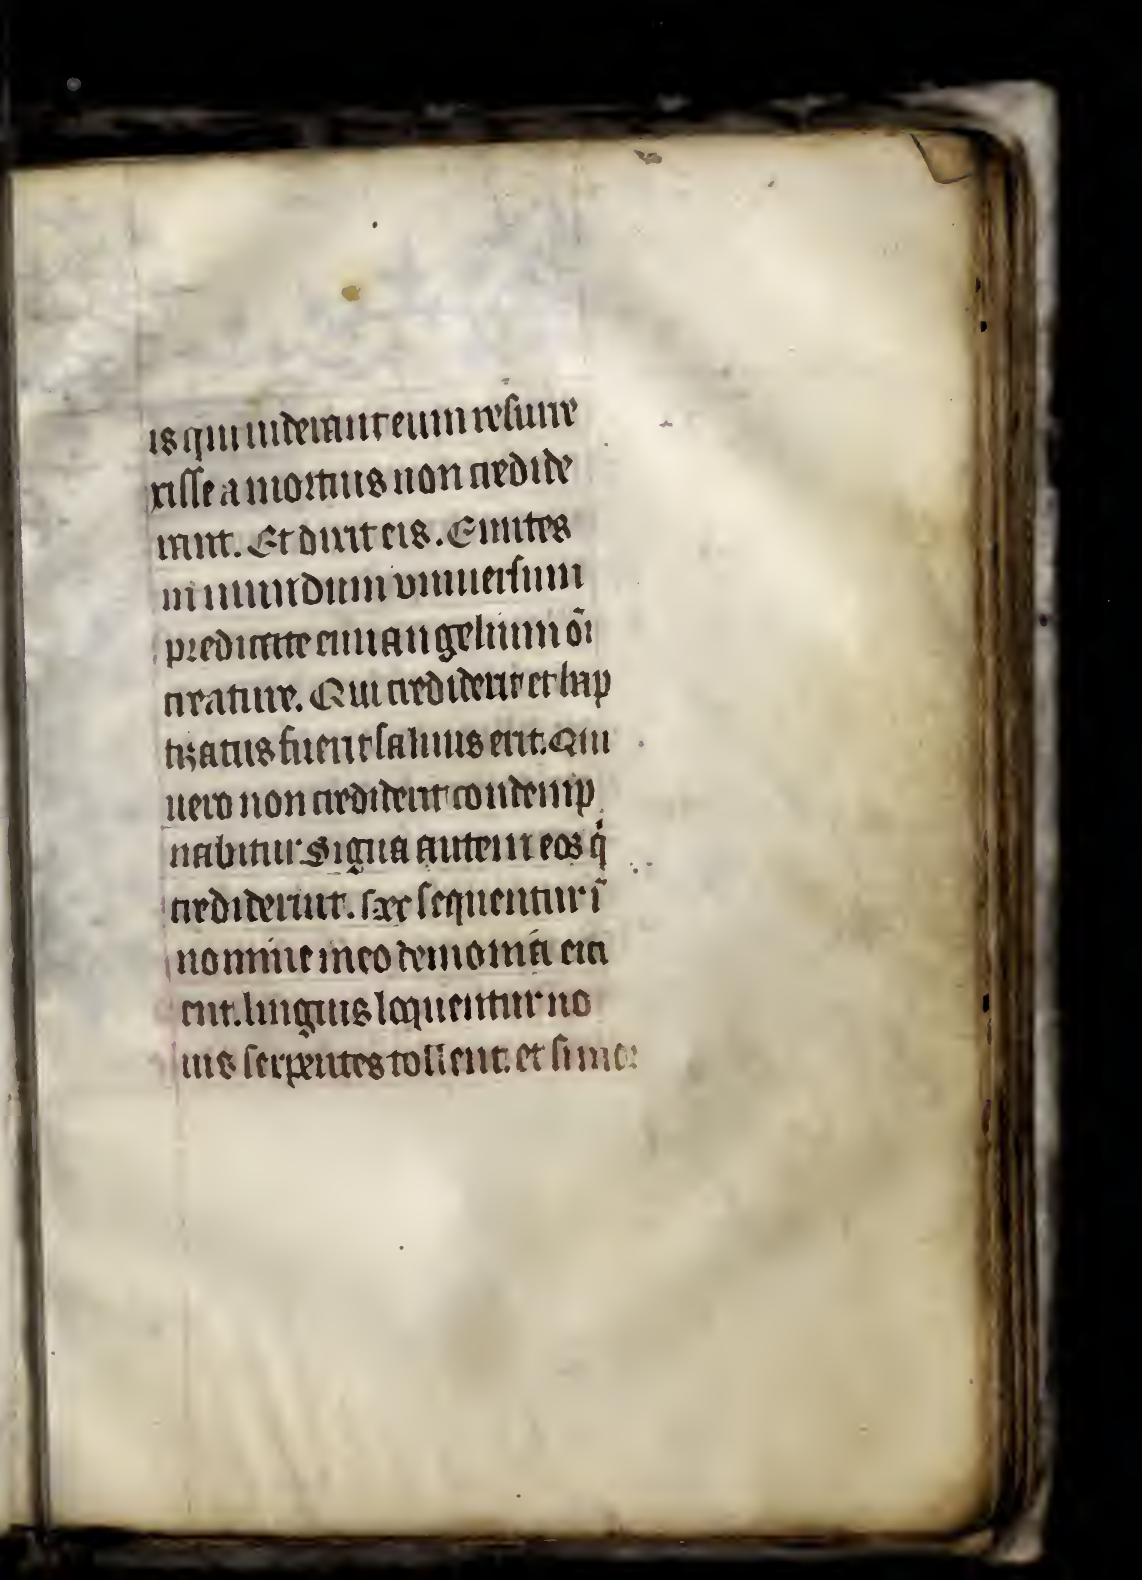 is qui uiderant eum resurre
xisse a mortuis non credide
runt. Et dixit eis. Euntes
in mundum vniuersum
predicate euuangelium oī
creature. Qui crediderit et bap
tizatus fuerit saluus erit. Qui
uero non crediderit condemp
nabitur Signa autem eos q̄
crediderint. hec sequentur ī
nomine meo demonia eici
ent. linguis loquentur no
uis serpentes tollent. et si mor